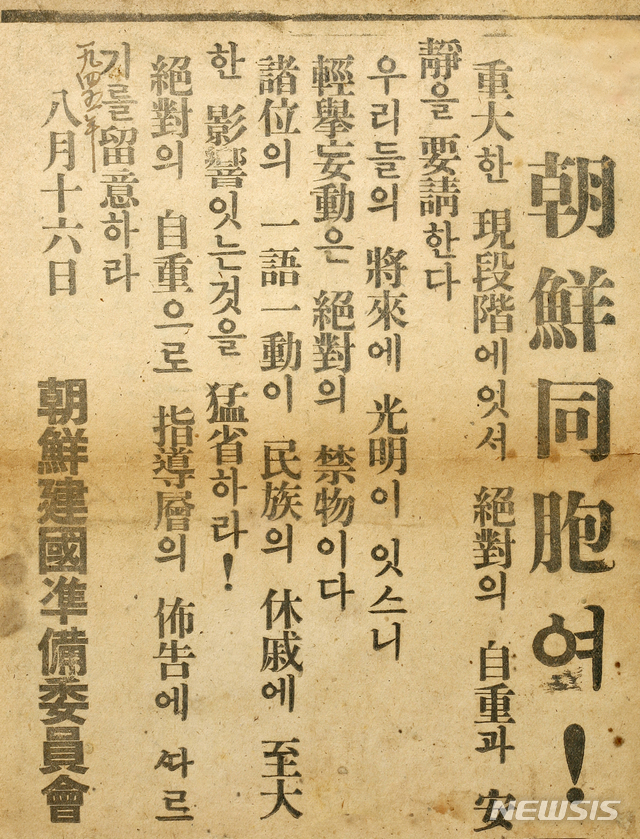 朝鮮同胞여!
重大한 現段階에잇서 絕對의 自重과 安
靜을 要請한다
우리들의 將來에 光明이 잇스니
輕擧妄動은 絕對의 禁物이다
諸位의 一語一動이 民族의 休戚에 至大
한 影響잇는것을 猛省하라!
絕對의 自重으로 指導層의 佈告에 ᄯᅡ르
기를 留意하라
一九四五年
八月十六日
朝鮮建國準備委員會
NEWSIS